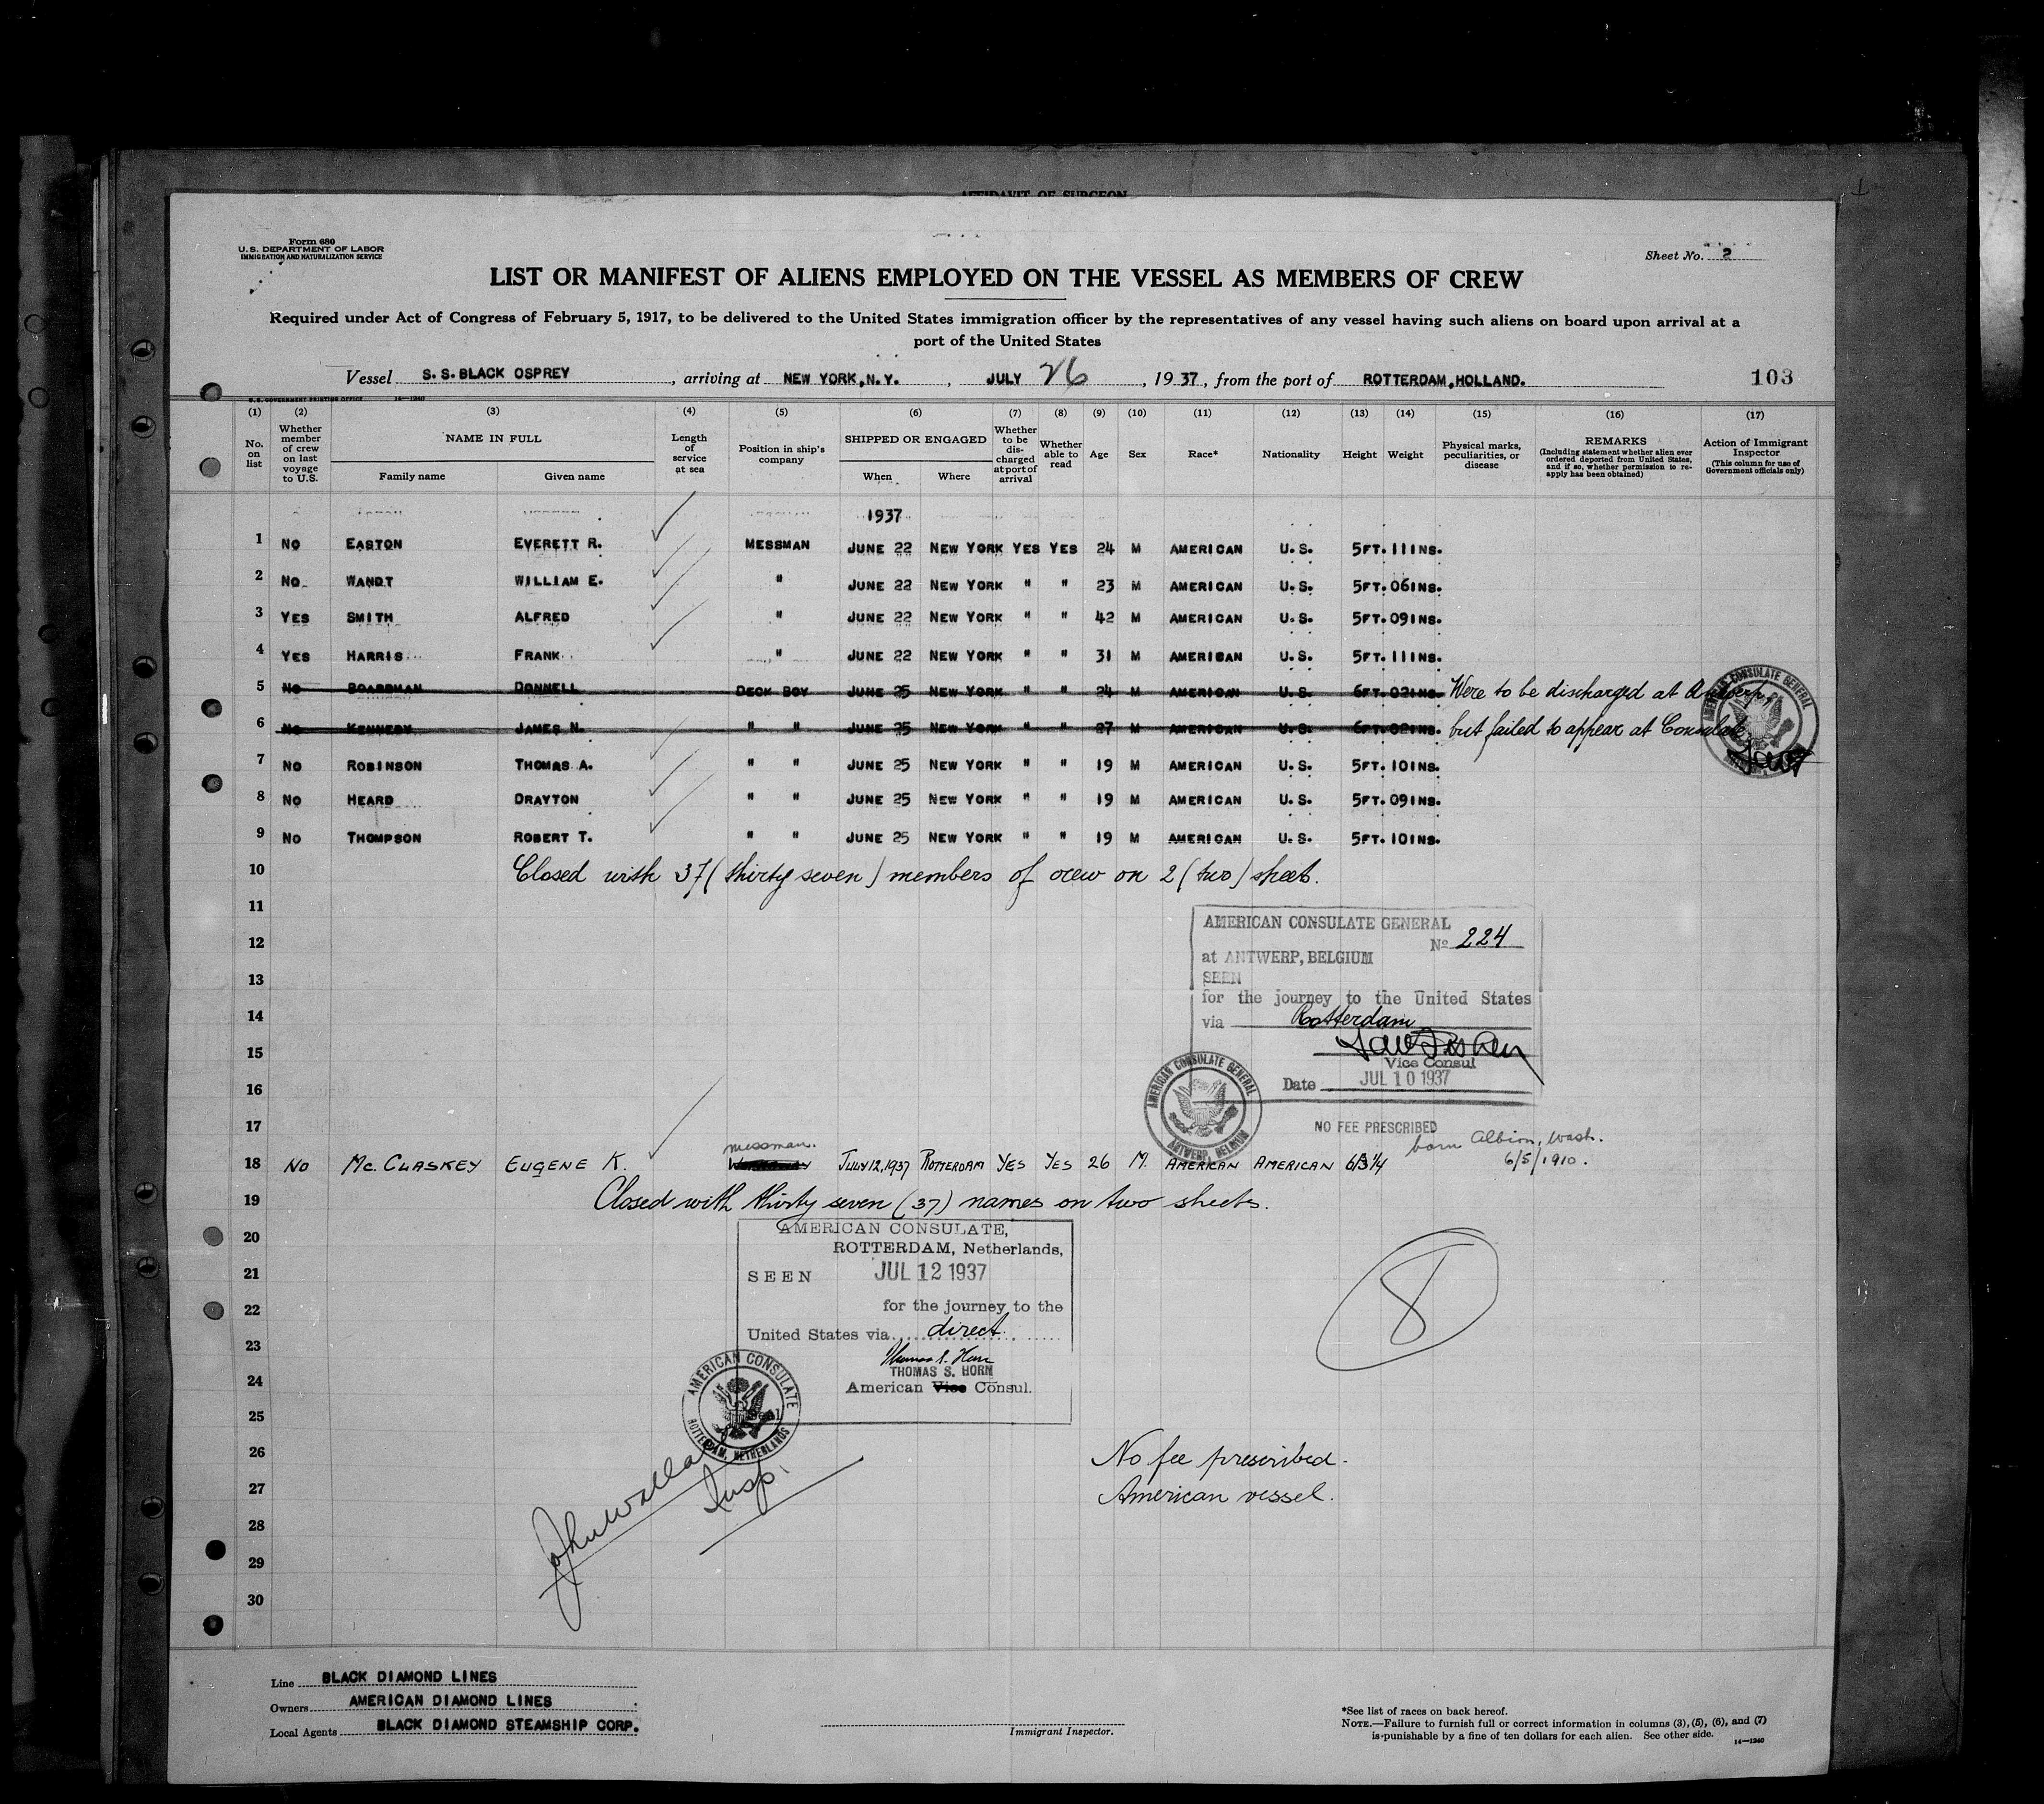 AFFIDAVIT OF SURGEON
Form 680
U. S. DEPARTMENT OF LABOR
IMMIGRATION AND NATURALIZATION SERVICE
Sheet No. 2
LIST OR MANIFEST OF ALIENS EMPLOYED ON THE VESSEL AS MEMBERS OF CREW
Required under Act of Congress of February 5, 1917, to be delivered to the United States immigration officer by the representatives of any vessel having such aliens on board upon arrival at a
port of the United States
Vessel S. S. BLACK OSPREY, arriving at NEW YORK, N.Y., JULY 26, 1937, from the port of ROTTERDAM, HOLLAND. 103
U. S. GOVERNMENT PRINTING OFFICE 14—1240
(1) (2) (3) (4) (5) (6) (7) (8) (9) (10) (11) (12) (13) (14) (15) (16) (17)
No. on list
Whether member of crew on last voyage to U.S.
NAME IN FULL
Family name
Given name
Length of service at sea
Position in ship's company
SHIPPED OR ENGAGED
When
Where
Whether to be discharged at port of arrival
Whether able to read
Age
Sex
Race*
Nationality
Height
Weight
Physical marks, peculiarities, or disease
REMARKS
(Including statement whether alien ever ordered deported from United States, and if so, whether permission to reapply has been obtained)
Action of Immigrant Inspector
(This column for use of Government officials only)
1937
1 NO EASTON EVERETT R. MESSMAN JUNE 22 NEW YORK YES YES 24 M AMERICAN U.S. 5FT.11INS.
2 NO WANDT WILLIAM E. " JUNE 22 NEW YORK " " 23 M AMERICAN U.S. 5FT.06INS.
3 YES SMITH ALFRED " JUNE 22 NEW YORK " " 42 M AMERICAN U.S. 5FT.09INS.
4 YES HARRIS FRANK " JUNE 22 NEW YORK " " 31 M AMERICAN U.S. 5FT.11INS.
5 NO BOARDMAN DONNELL DECK BOY JUNE 25 NEW YORK " " 24 M AMERICAN U.S. 6FT.02INS. Were to be discharged at Antwerp
6 NO KENNEDY JAMES N. " " JUNE 25 NEW YORK " " 27 M AMERICAN U.S. 6FT.02INS. but failed to appear at Consulate
7 NO ROBINSON THOMAS A. " " JUNE 25 NEW YORK " " 19 M AMERICAN U.S. 5FT.10INS.
8 NO HEARD DRAYTON " " JUNE 25 NEW YORK " " 19 M AMERICAN U.S. 5FT.09INS.
9 NO THOMPSON ROBERT T. " " JUNE 25 NEW YORK " " 19 M AMERICAN U.S. 5FT.10INS.
10 Closed with 37 (thirty seven) members of crew on 2 (two) sheet.
11
12
13
14
15
16
17
AMERICAN CONSULATE GENERAL
No 224
at ANTWERP, BELGIUM
SEEN
for the journey to the United States
via Rotterdam
Vice Consul
Date JUL 10 1937
AMERICAN CONSULATE GENERAL
ANTWERP, BELGIUM
NO FEE PRESCRIBED
born Albion, Wash.
6/5/1910.
messman.
18 NO Mc. CLASKEY EUGENE K. JULY 12, 1937 ROTTERDAM YES YES 26 M. AMERICAN AMERICAN 6/3 1/4
19 Closed with thirty seven (37) names on two sheets.
20
21
22
23
24
25
26
27
28
29
30
AMERICAN CONSULATE,
ROTTERDAM, Netherlands,
SEEN JUL 12 1937
for the journey to the
United States via direct
THOMAS S. HORN
American Vice Consul.
AMERICAN CONSULATE
ROTTERDAM, NETHERLANDS
8
No fee prescribed.
American vessel.
Insp.
Line BLACK DIAMOND LINES
Owners AMERICAN DIAMOND LINES
Local Agents BLACK DIAMOND STEAMSHIP CORP.
Immigrant Inspector.
*See list of races on back hereof.
NOTE.—Failure to furnish full or correct information in columns (3), (5), (6), and (7)
is punishable by a fine of ten dollars for each alien. See other side. 14—1240